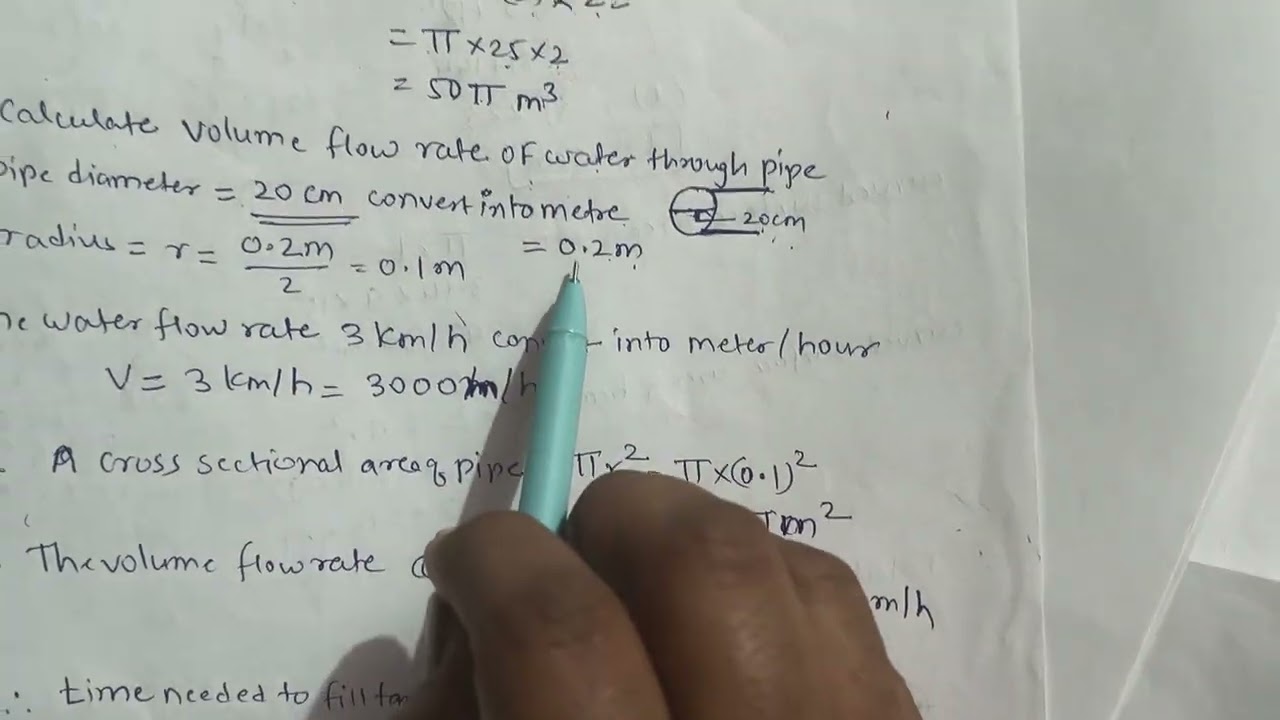 = π × 25 × 2
= 50π m³
Calculate volume flow rate of water through pipe
pipe diameter = 20 cm convert into metre
20cm
= 0.2m
radius = r = 0.2m/2 = 0.1m
water flow rate 3 km/h into meter/hour
V = 3 km/h = 3000 m/h
A cross sectional area of pipe πr² π×(0.1)²
m²
The volume flow rate
m/h
∴ time needed to fill